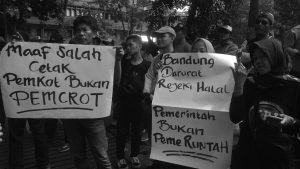 Maaf Salah
Cetak
Pemkot Bukan
PEMCROT
Bandung
Darurat
Rejeki Halal
Pemerintah
Bukan
Peme RUNTAH